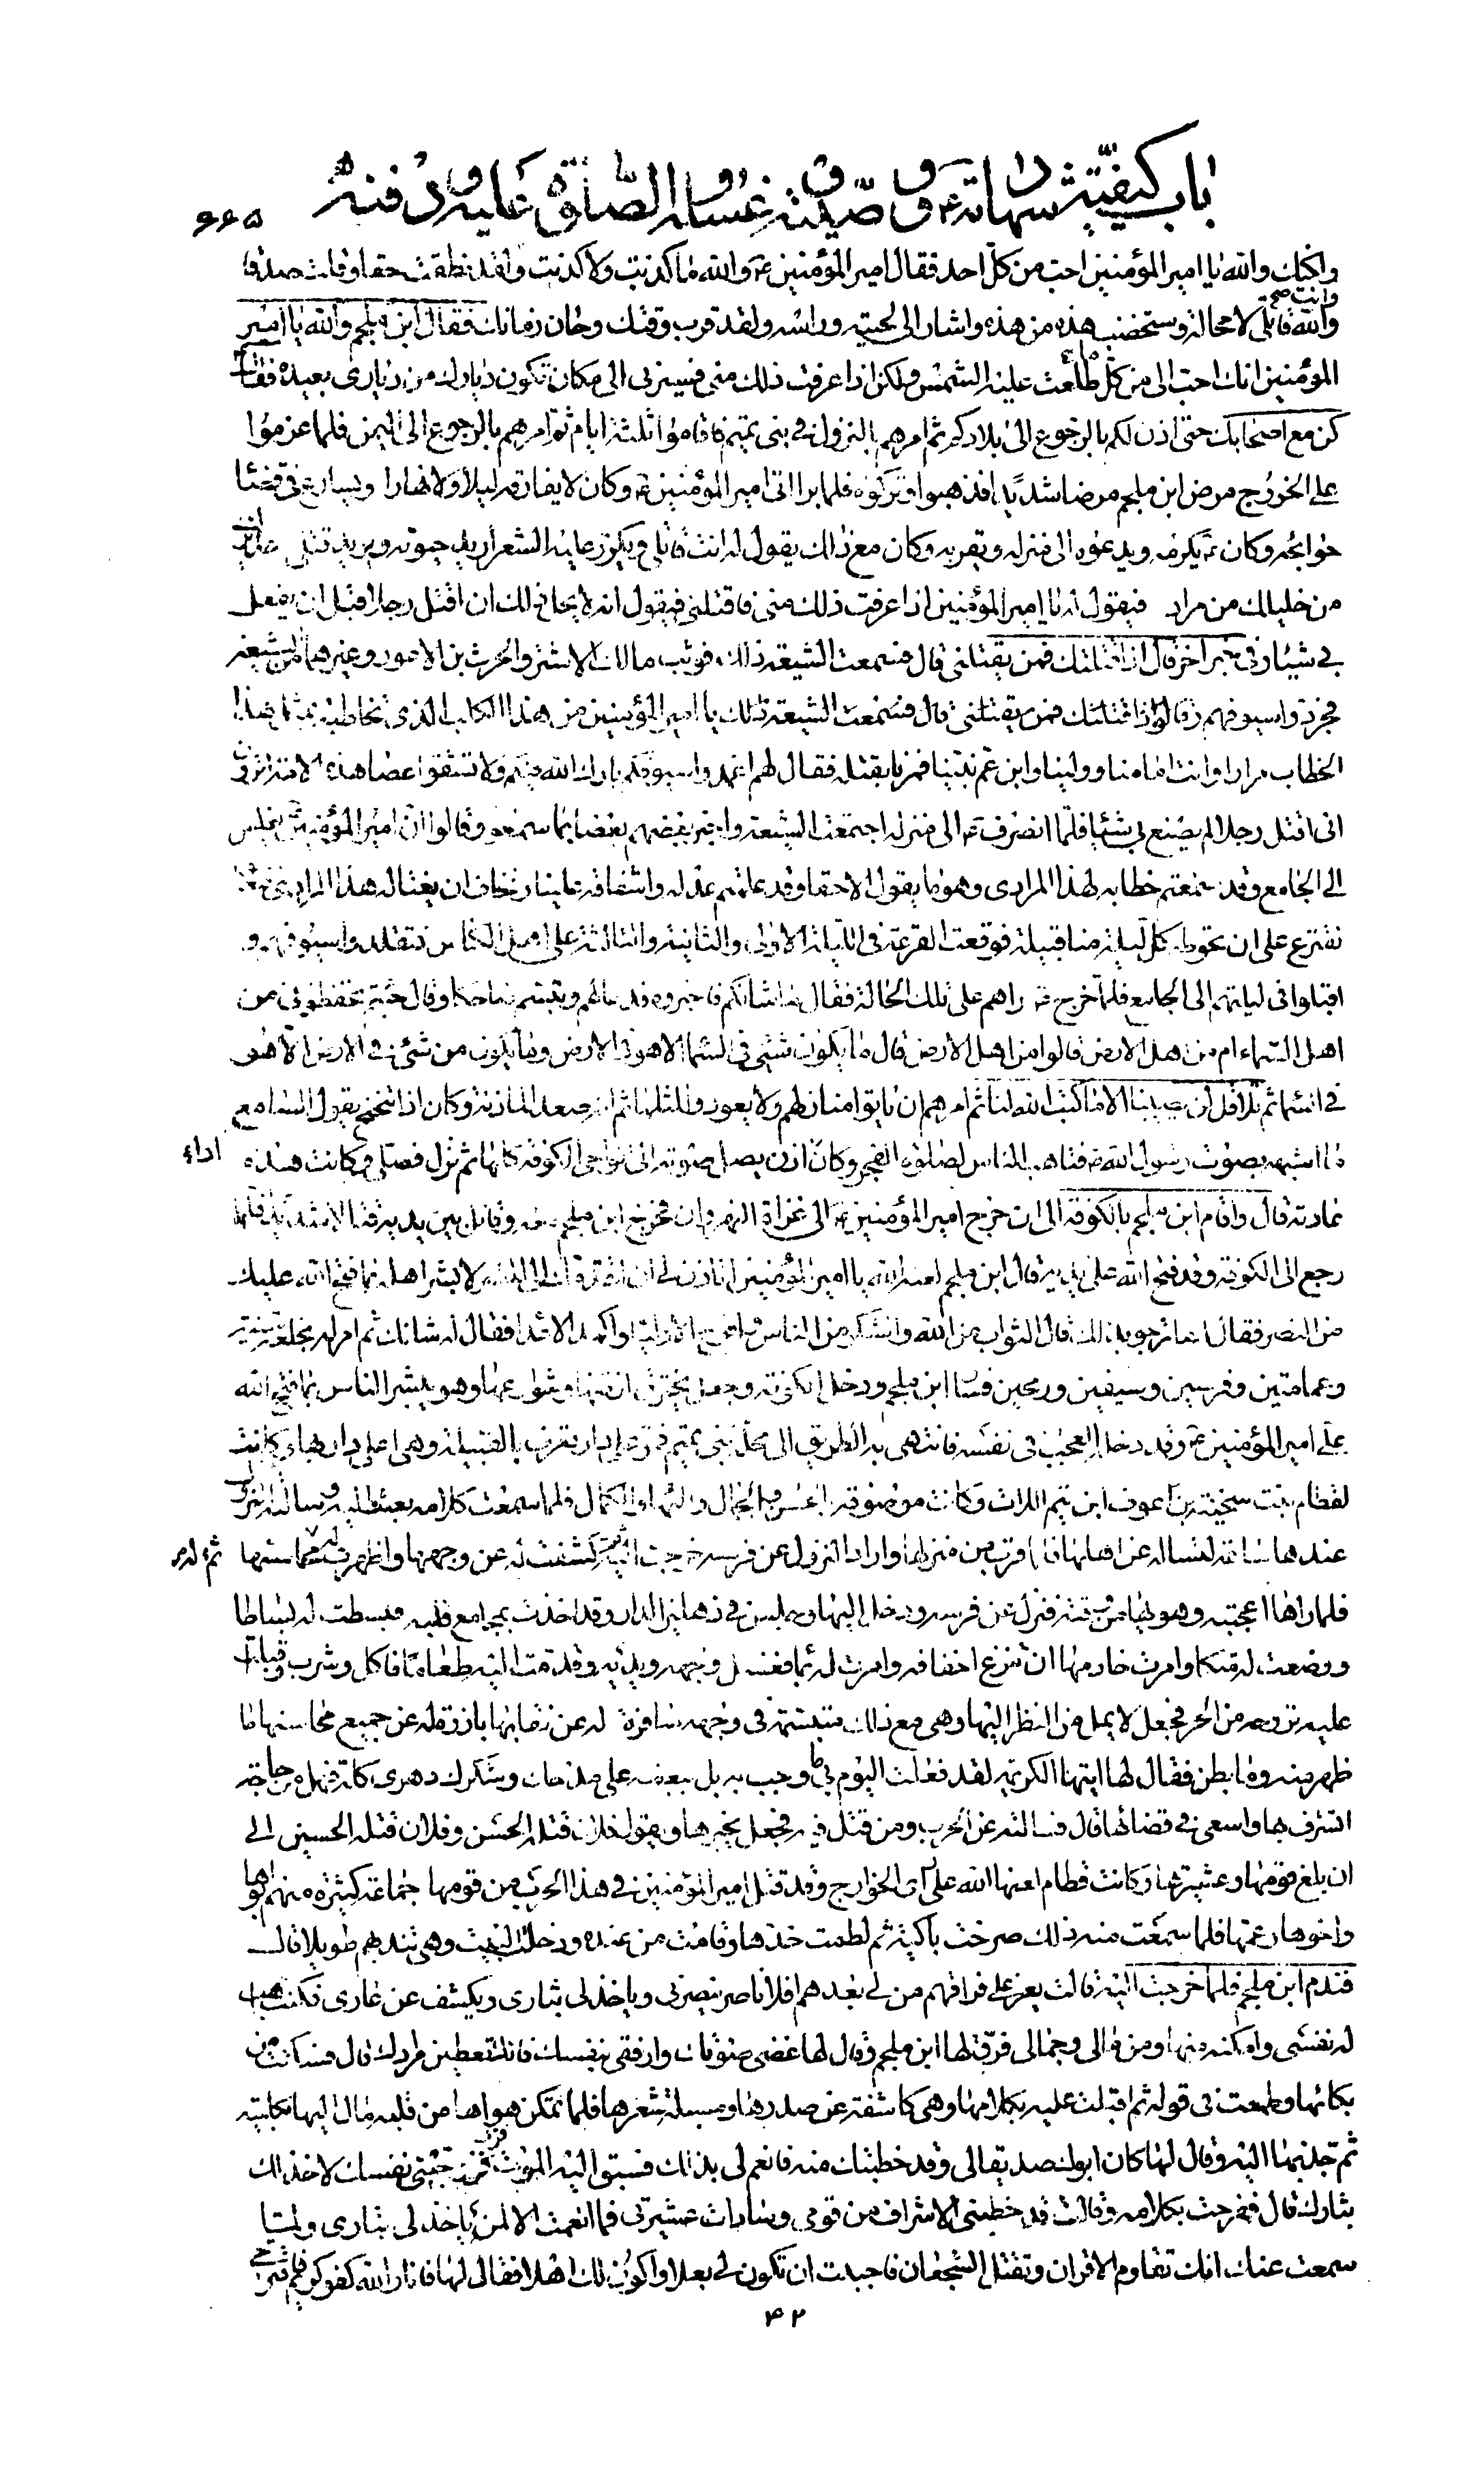 باب كيفيّة شهادته ع و وصيّته و غسله و الصّلوة عليه و دفنه
٦٦٥
واكنك والله يا امير المؤمنين احب من كلّ احد فقال امير المؤمنين ع والله ما كذبت ولا كذبت ولقد نطقت حقا وقلت صدقا
وانت والله قاتلى لا محالة وستخضب هذه من هذه واشار الى لحيته وراسه ولقد قرب وقتك وحان زمانك فقال ابن ملجم والله يا امير
المؤمنين انك احب الى من كل ما طلعت عليه الشمس ولكن اذا عرفت ذلك منى فسيرنى الى مكان تكون ديارك من ديارى بعيدة فقال
كن مع اصحابك حتى اذن لكم بالرجوع الى بلادكم ثم امرهم بالنزول فى بنى تميم فاقاموا ثلثة ايام ثم امرهم بالرجوع الى اليمن فلما عزموا
على الخروج مرض ابن ملجم مرضا شديدا فذهبوا وتركوه فلما برا اتى امير المؤمنين ع وكان لا يفارقه ليلا ولا نهارا ويسارع فى قضاء
حوائجه وكان ع يكرمه ويدعوه الى منزله ويقربه وكان مع ذلك يقول له انت قاتلى ويكرر عليه الشعر اريد حيوته ويريد قتلى عذيرك
من خليلك من مراد فيقول له يا امير المؤمنين اذا عرفت ذلك منى فاقتلنى فيقول انه لا يحل ذلك ان اقتل رجلا قبل ان يفعل
بى شيئا وفى خبر اخر قال اذا قتلتك فمن يقتلنى قال فسمعت الشيعة ذلك فوثب مالك الاشتر والحرث بن الاعور وغيرهما من الشيعة
فجردوا سيوفهم وقالوا يا امير المؤمنين من هذا الكلب الذى تخاطبه بمثل هذا
الخطاب مرارا وانت امامنا وولينا وابن عم نبينا فمرنا بقتله فقال لهم اغمدوا سيوفكم بارك الله فيكم ولا تشقوا عصا هذه الامة اترون
انى اقتل رجلا لم يصنع بى شيئا فلما انصرف ع الى منزله اجتمعت الشيعة واخبر بعضهم بعضا بما سمعوا وقالوا ان امير المؤمنين يغلس
الى الجامع وقد سمعتم خطابه لهذا المرادى وهو ما يقول الا حقا وقد علمتم عدله واشفاقه علينا ونخاف ان يغتاله هذا المرادى فتعالوا
نقترع على ان تحوطه كل ليلة منا قبيلة فوقعت القرعة فى الليلة الاولى والثانية والثالثة على اهل الكناس فتقلدوا سيوفهم و
اقبلوا فى ليلتهم الى الجامع فلما خرج ع راهم على تلك الحالة فقال ما شانكم فاخبروه فدعا لهم وتبسم ضاحكا وقال جئتم تحفظونى من
اهل السماء ام من اهل الارض قالوا من اهل الارض قال ما يكون شئ فى السماء الا هو فى الارض وما يكون من شئ فى الارض الا هو
فى السماء ثم تلا قل لن يصيبنا الا ما كتب الله لنا ثم امرهم ان ياتوا منازلهم ولا يعودوا لمثلها ثم انه صعد الماذنة وكان اذا تنحنح يقول السامع
ما اشبهه بصوت رسول الله ص فتاهب الناس لصلوة الفجر وكان اذا اذن يصل صوته الى نواحى الكوفة كلها ثم نزل فصلى وكانت هذه
اداء
عادته قال واقام ابن ملجم بالكوفة الى ان خرج امير المؤمنين ع الى غزاة النهروان فخرج ابن ملجم معه وقاتل بين يديه قتالا شديدا فلما
رجع الى الكوفة وقد فتح الله على يديه قال ابن ملجم لعنه الله يا امير المؤمنين اتاذن لى ان اتقدمك الى المصر لابشر اهله بما فتح الله عليك
من النصر فقال له ما ترجو بذلك قال الثواب من الله والشكر من الناس وافرح الاولياء واكمد الاعداء فقال له شانك ثم امر له بخلعة سنية
وعمامتين وفرسين وسيفين ورمحين فسار ابن ملجم ودخل الكوفة وجعل يخترق ازقتها وشوارعها وهو يبشر الناس بما فتح الله
على امير المؤمنين ع وقد دخله العجب فى نفسه فانتهى به الطريق الى محلة بنى تميم فمر على دار تعرف بالقبيلة وهى اعلى دار بها وكانت
لقطام بنت سخينة بن عوف ابن تيم اللات وكانت موصوفة بالحسن والجمال والبهاء والكمال فلما سمعت كلامه بعثت اليه وسالته النزول
عندها ساعة لتساله عن اهلها فلما قرب من منزلها واراد النزول عن فرسه خرجت اليه ثم كشفت له عن وجهها واظهرت له محاسنها
فلما راها اعجبته وهواها من وقته فنزل عن فرسه ودخل اليها وجلس فى دهليز الدار وقد اخذت بمجامع قلبه فبسطت له بساطا
ووضعت له متكا وامرت خادمها ان تنزع اخفافه وامرت له بماء فغسل وجهه ويديه وقدمت اليه طعاما فاكل وشرب واقبلت
عليه تروحه من الحر فجعل لا يمل من النظر اليها وهى مع ذلك متبسمة فى وجهه سافرة له عن نقابها بارزة له عن جميع محاسنها ما
ظهر منه وما بطن فقال لها ايتها الكريمة لقد فعلت اليوم بى ما وجب به بل ببعضه على مدحك وشكرك دهرى كله فهل من حاجة
اتشرف بها واسعى فى قضائها قال فسالته عن الحرب ومن قتل فيه فجعل يخبرها ويقول فلان قتله الحسن وفلان قتله الحسين الى
ان بلغ قومها وعشيرتها وكانت قطام لعنها الله على راى الخوارج وقد قتل امير المؤمنين فى هذا الحرب من قومها جماعة كثيرة منهم ابوها
واخوها وعمها فلما سمعت منه ذلك صرخت باكية ثم لطمت خدها وقامت من عنده ودخلت البيت وهى تندبهم طويلا قال
فندم ابن ملجم فلما خرجت اليه قالت يعز على فراقهم من لى بعدهم افلا ناصر ينصرنى وياخذ لى بثارى ويكشف عن عارى فكنت اهب
له نفسى وامكنه منها ومن مالى وجمالى فرق لها ابن ملجم وقال لها غضى صوتك وارفقى بنفسك فانك تعطين مرادك قال فسكتت من
بكائها وطمعت فى قوله ثم اقبلت عليه بكلامها وهى كاشفة عن صدرها ومسبلة شعرها فلما تمكن هواها من قلبه مال اليها بكليته
ثم جذبها اليه وقال لها كان ابوك صديقا لى وقد خطبتك منه فانعم لى بذلك فسبق اليه الموت فزوجينى نفسك لاخذ لك
بثارك قال ففرحت بكلامه وقالت قد خطبنى الاشراف من قومى وسادات عشيرتى فما انعمت الا لمن ياخذ لى بثارى ولما
سمعت عنك انك تقاوم الاقران وتقتل الشجعان فاحببت ان تكون لى بعلا واكون لك اهلا فقال لها فانا والله كفو كريم فاقترحى
٤٢